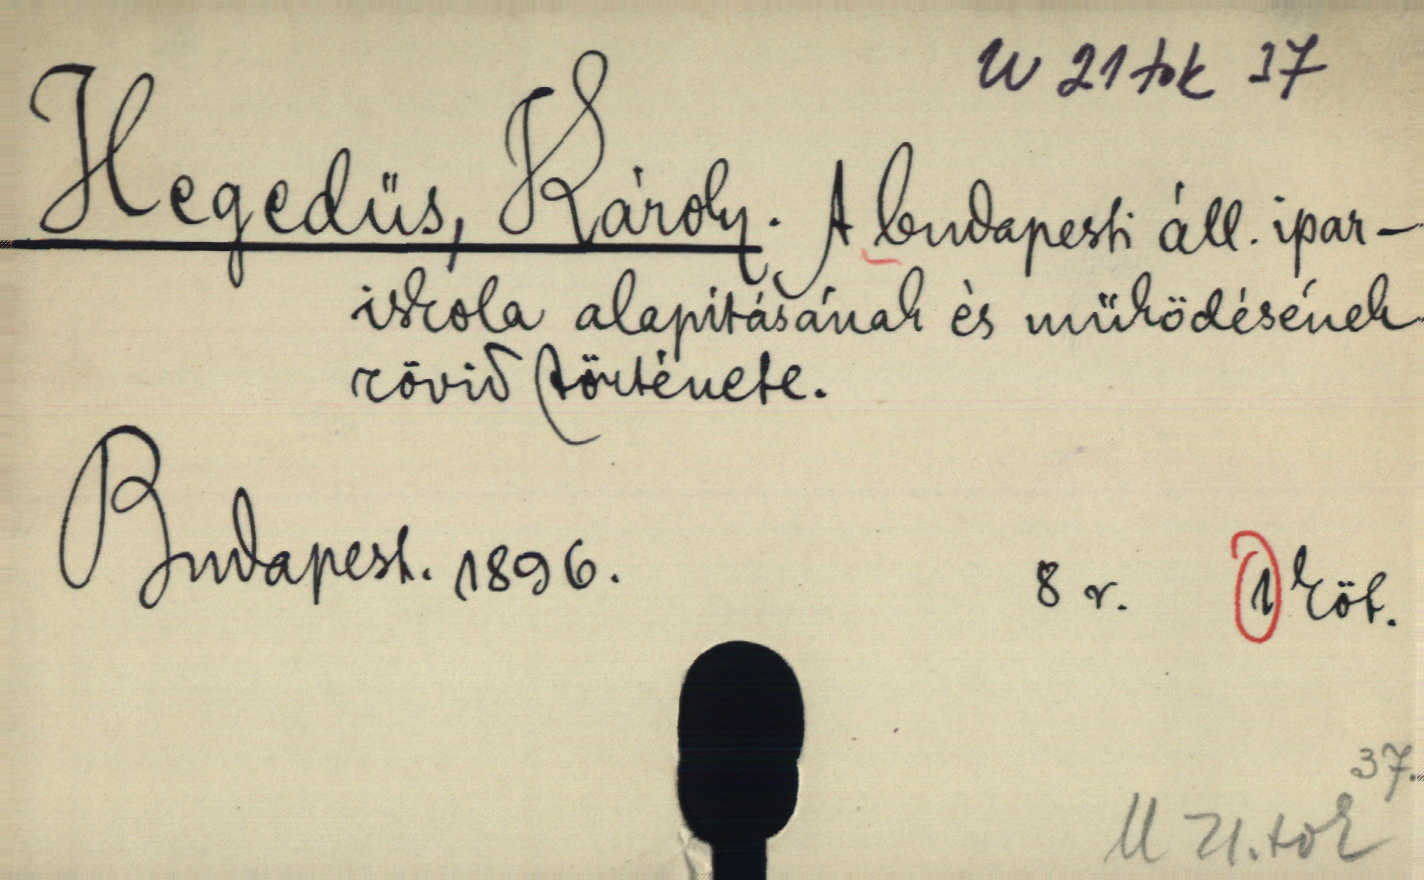 U 21 tok 37
Hegedüs, Károly. A budapesti áll. ipar-
iskola alapításának és müködésének
rövid története.
Budapest. 1896. 8 r. 1 köt.
37.
U 21. tok